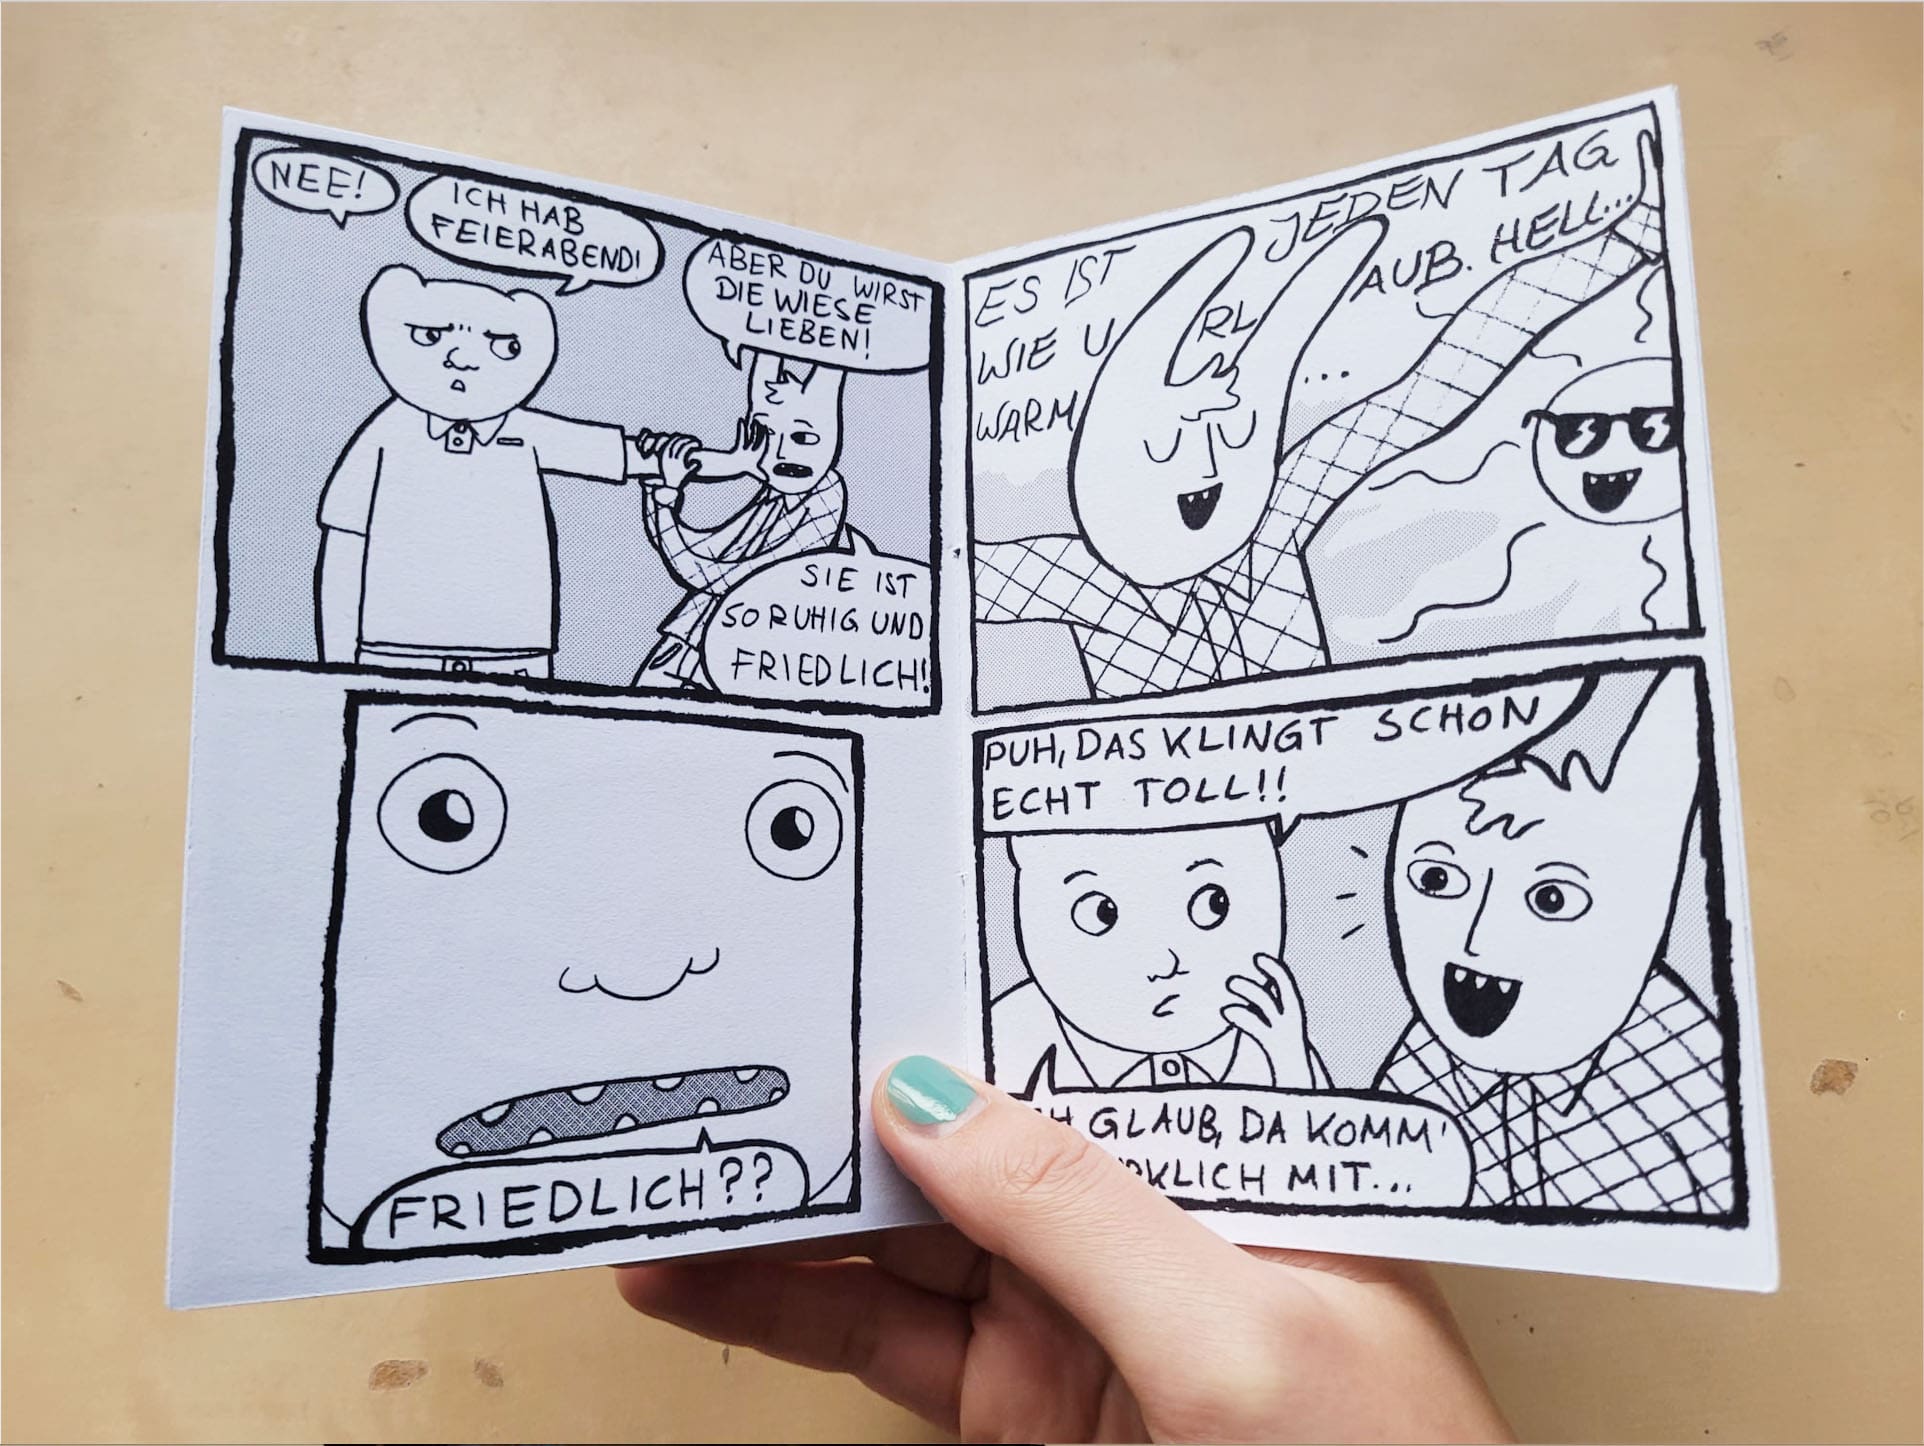 NEE!
ICH HAB
FEIERABEND!
ABER DU WIRST
DIE WIESE
LIEBEN!
SIE IST
SO RUHIG UND
FRIEDLICH!
FRIEDLICH??
ES IST JEDEN TAG
WIE URLAUB. HELL...
WARM...
PUH, DAS KLINGT SCHON
ECHT TOLL!!
GLAUB, DA KOMM'
MIT...